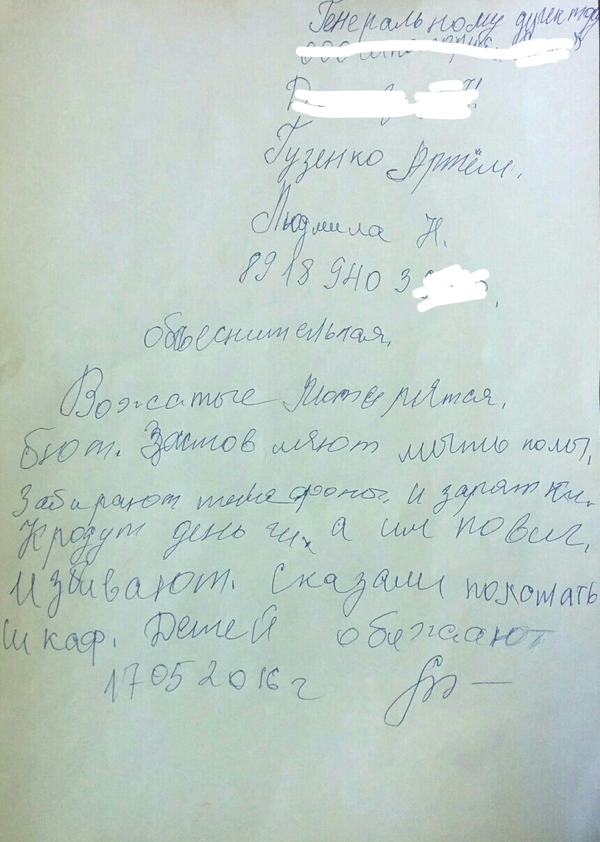 Генеральному директо
Гузенко Артём.
Людмила Н.
8918 940 3
объеснительная.
Вожатые матерятся.
бют. Заставляют мыть полы,
Забирают телефоны, и зарятки.
Крадут деньги, а им повиг,
Избивают. Сказали поломать
шкаф. Детей обежают
17 05 2016 г